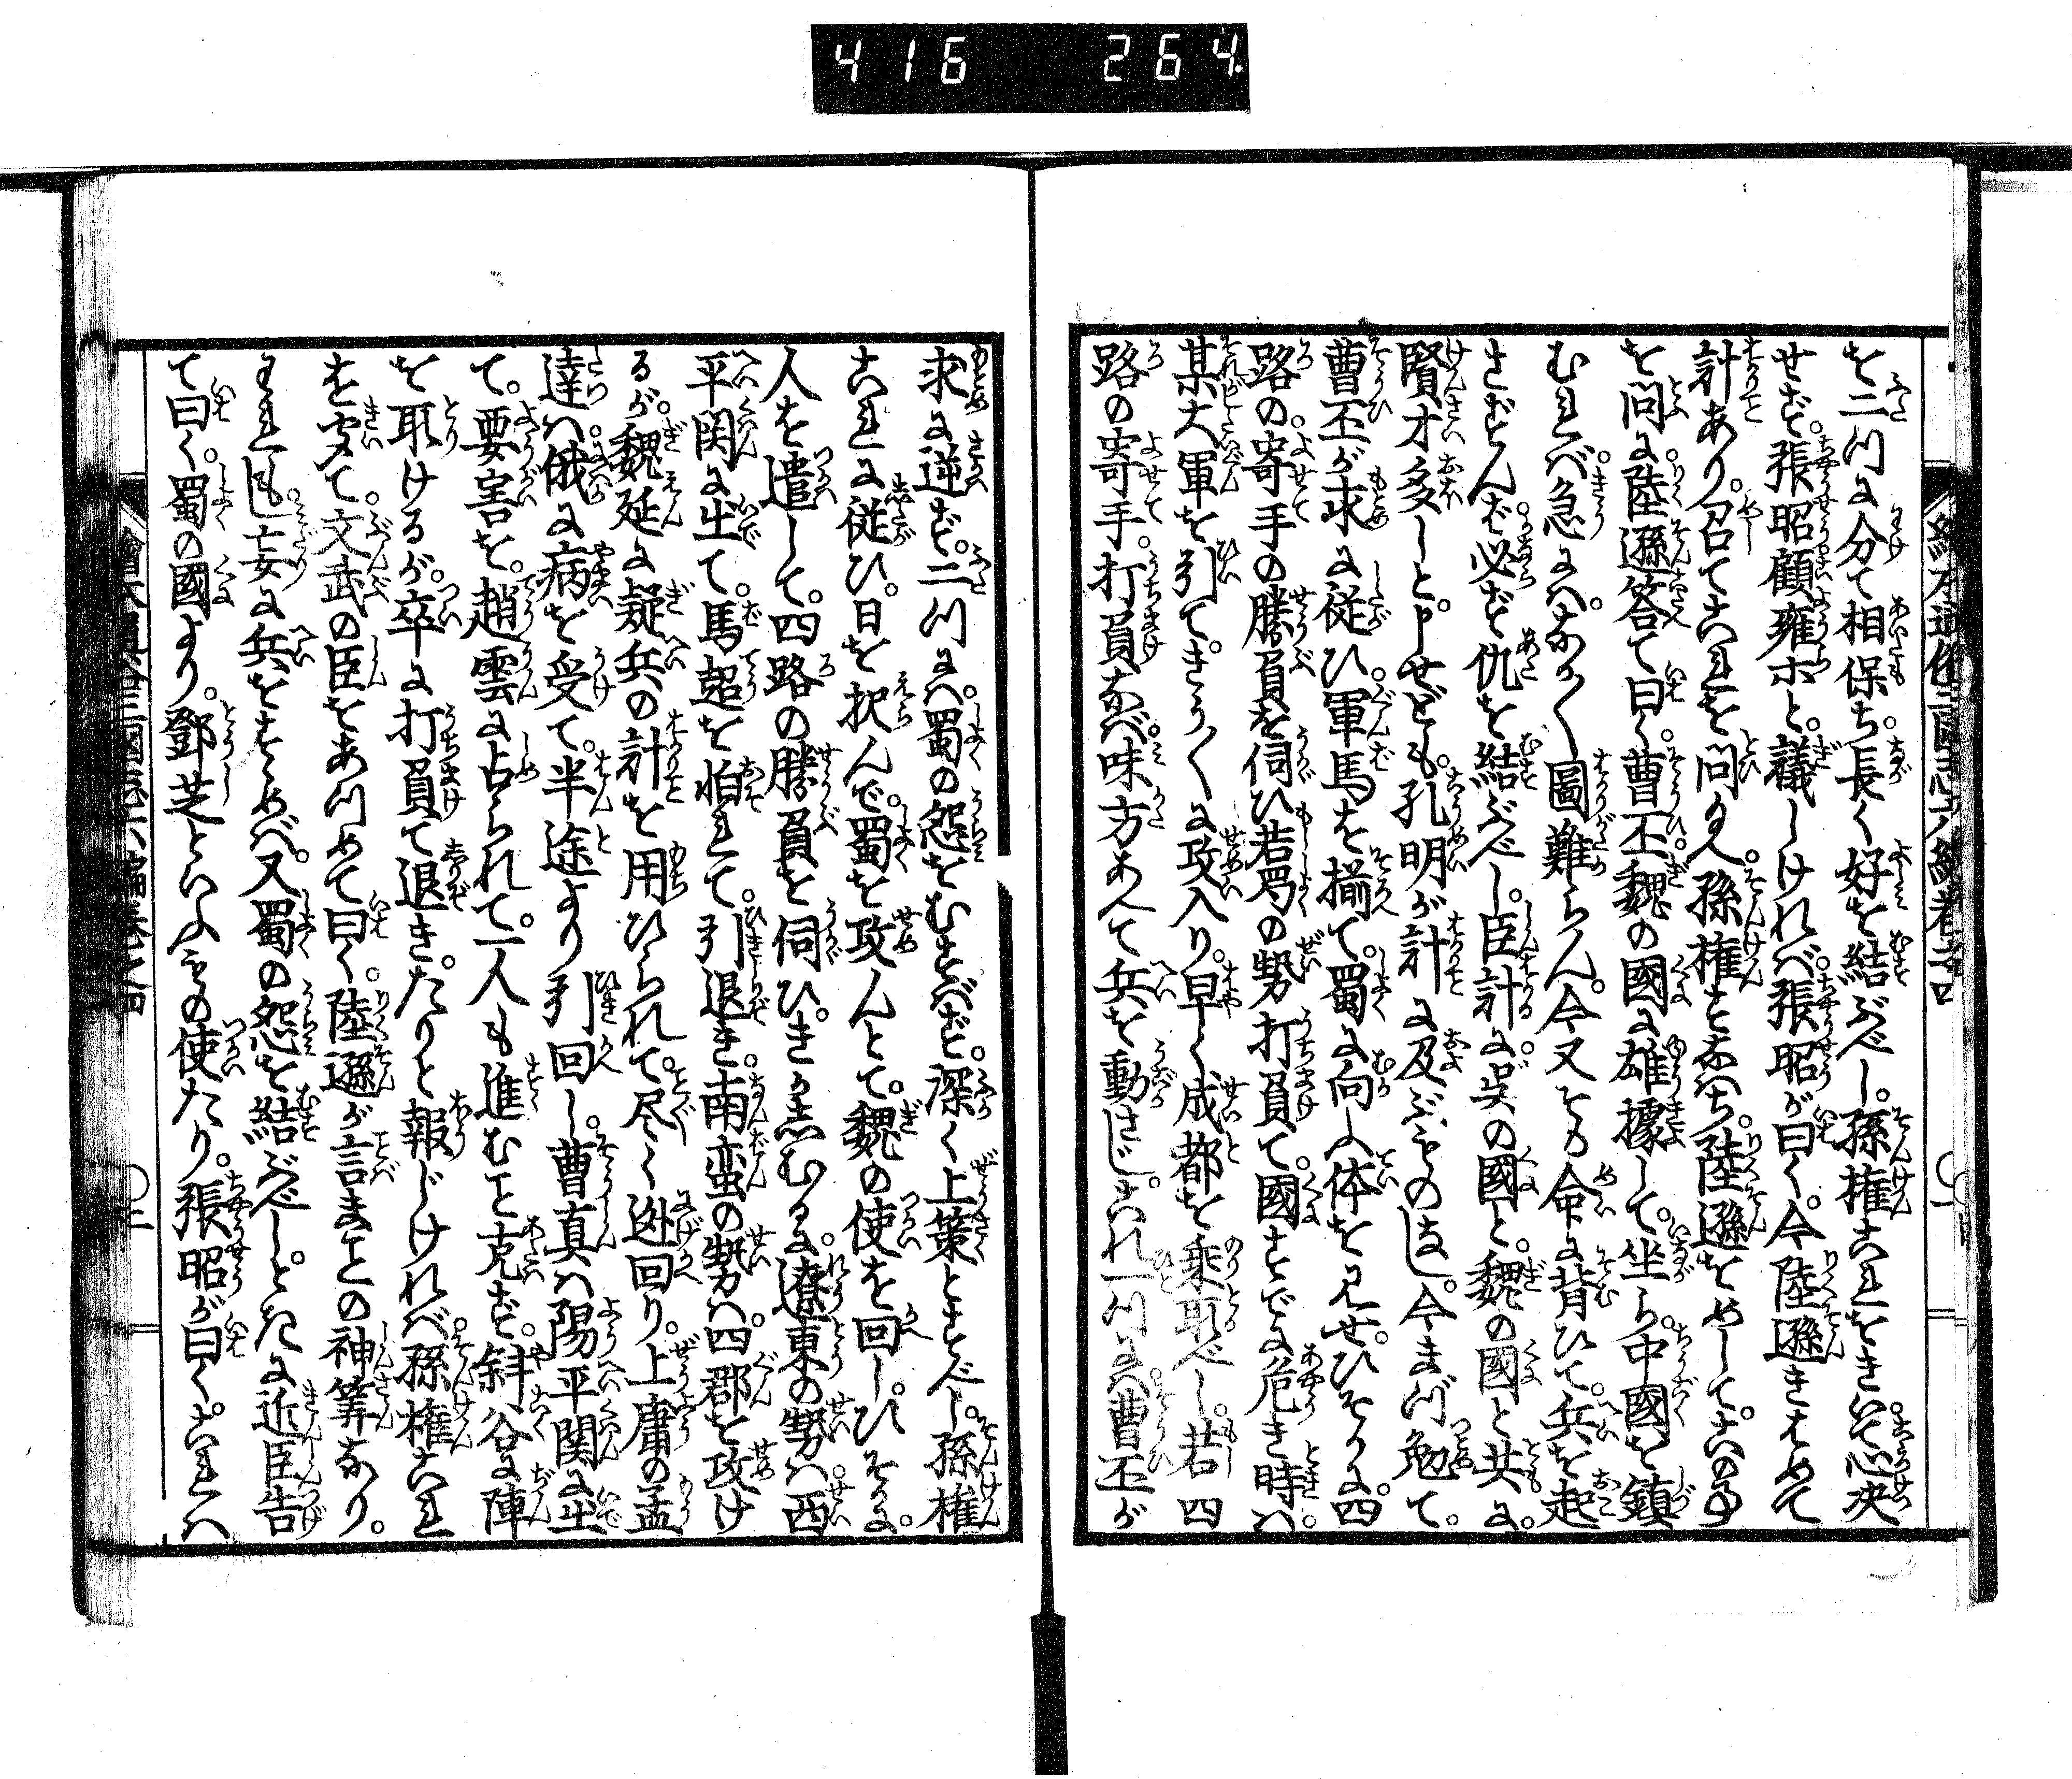 416 264.
を二つに分て相保ち。長く好を結ぶべし。孫権これをきいて心決
せず。張昭顧雍ホと。議しければ。張昭が曰く。今陸遜きはめて
計あり。召てこれを問たまへ。孫権となはち。陸遜をめして。この事
を問に。陸遜答て曰く。曹丕。魏の國に雄據して。坐ら。中國を鎮
むれば。急には。なか〱圖難らん。今又その命に背ひて。兵を起
さずんば。必ず仇を結ぶべし。臣計に。呉の國と。魏の國と共に。
賢才多しと申せども。孔明が計に及ぶものはなし。今まづ勉て。
曹丕が求に従ひ。軍馬を揃て。蜀に向ふ体を見せ。ひそかに。四
路の。寄手の勝負を伺ひ。若蜀の勢打負て。國すでに危き時は。
某大軍を引て。きう〱に攻入り。早く成都を乗取べし。若四
路の寄手。打負なば。味方あへて兵を動さじ。これ一つには。曹丕が
求に逆ず。二つには。蜀の怨をむすばず。深く上策とすべし。孫権
これに従ひ。日を択んで。蜀を攻んとて。魏の使を回し。ひそかに。
人を遣して。四路の勝負を伺ひ。きかしむるに。遼東の勢は。西
平関に出て。馬超を怕れて。引退き。南蛮の勢は。四郡を攻け
るが。魏延に疑兵の計を用ひられて。尽く迯回り。上庸の孟
達は。俄に病を受て。半途より引回し。曹真は陽平関に出
て。要害を。趙雲に占られて。一人も進むこと克ず。斜谷に陣
を取けるが。卒に打負て退きたりと報じければ。孫権これ
を聞て。文武の臣をあつめて曰く。陸遜が言まことの神筭なり。
われ若妄に兵をすゝめば。又蜀の怨を結ぶべしとたに近臣告
て曰く。蜀の國より。鄧芝といふもの使たり。張昭が曰く。これは